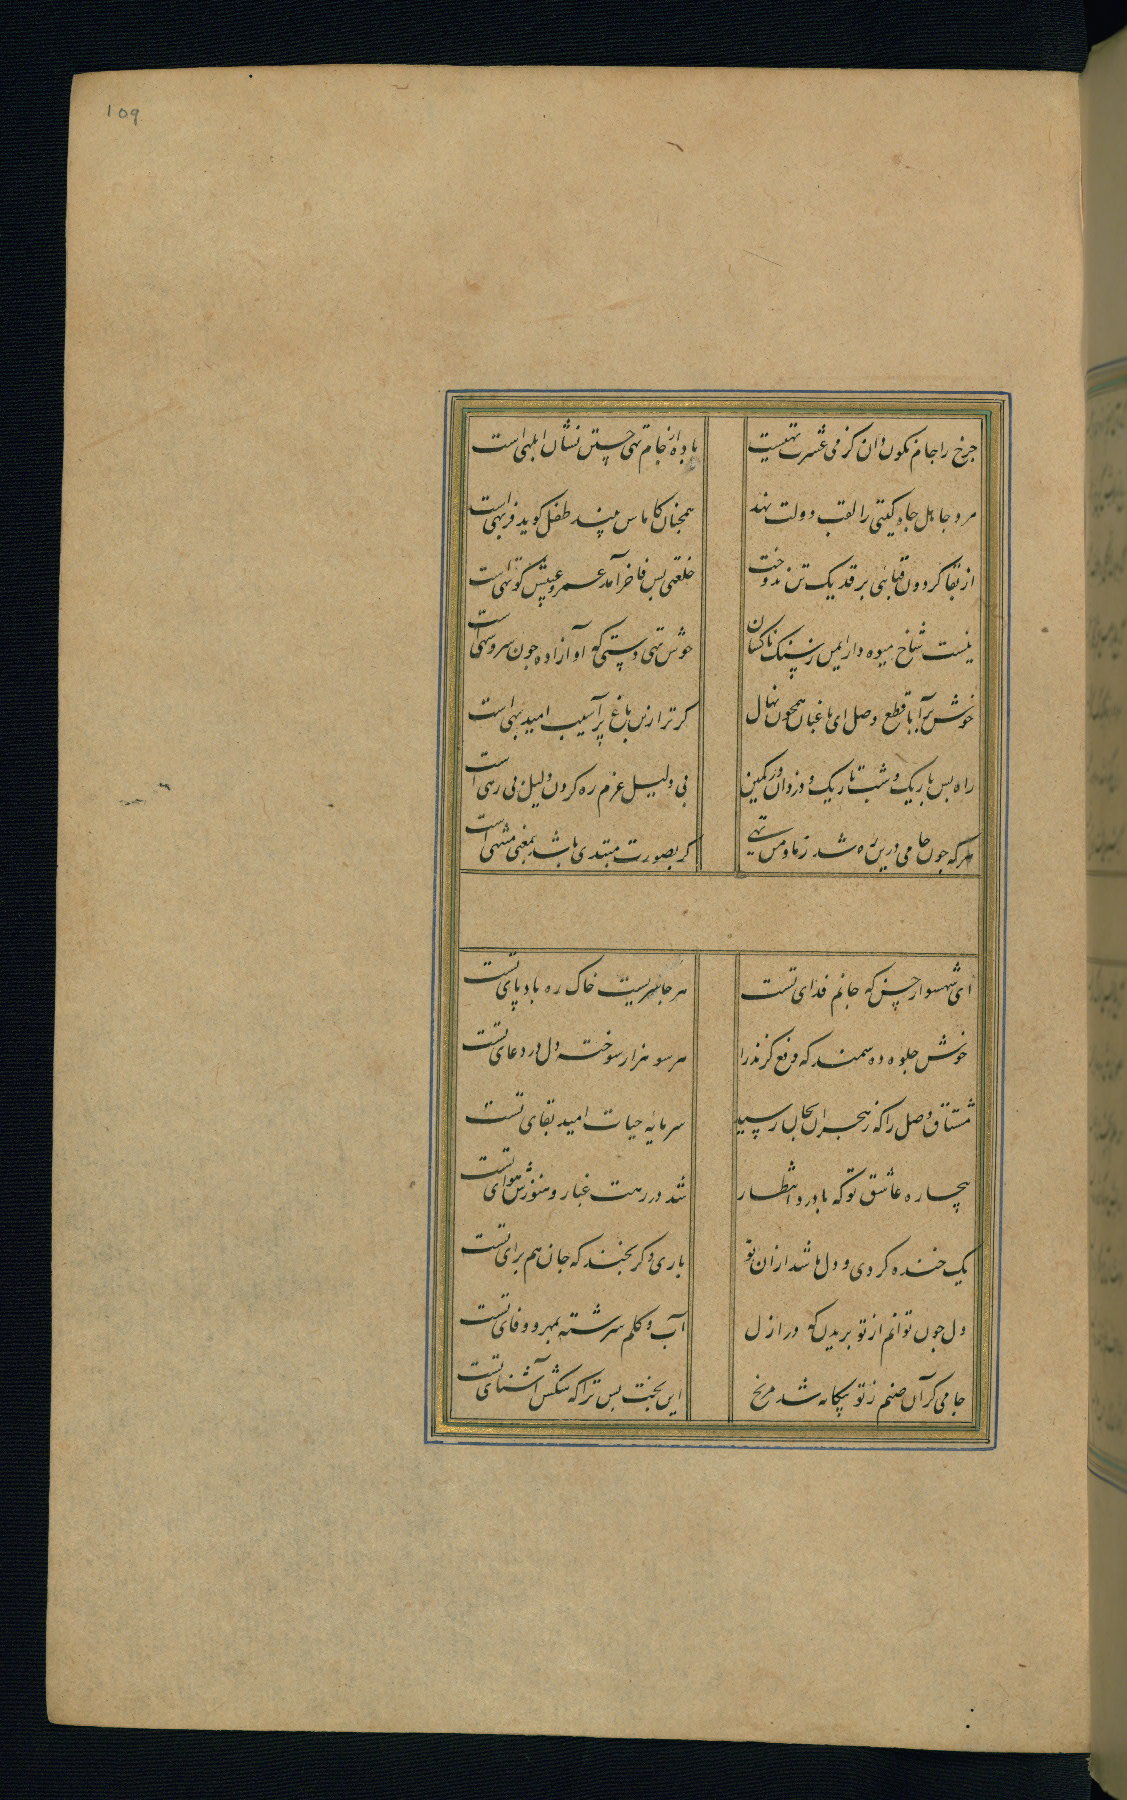 109
چرخ را جام نکون دان کز می عشرت تهیست
باده از جام تهی جستن نشان ابلهی است
مرد جاهل جاه کیتی را لقب دولت نهد
همچنان کاماس بیند طفل کوید فربهی است
از بقا کردون قبایی بر قد یک تن ندوخت
خلعتی بس فاخر آمد عمر و عیبش کوتهی است
نیست شاخ میوه دار ایمن ز سنک ناکسان
خوش تهی دستی که او آزاده چون سرو سهی است
خوش برآ با قطع وصل ای باغبان همچون نهال
کر ترا زین باغ پر آسیب امید بهی است
راه بس باریک و شب تاریک و دزدان در کمین
بی دلیل عزم ره کردن دلیل بی رهی است
هر که چون جامی درین ره شد ز ما و من تهی
کر بصورت مبتدی باشد بمعنی منتهی است
ای شهسوار حسن که جانم فدای تست
هر جا سریست خاک ره بادپای تست
خوش جلوه ده سمند که دفع کزند را
هر سو هزار سوخته دل در دعای تست
مشتاق وصل را که ز هجران بجان رسید
سرمایه حیات امید بقای تست
بیچاره عاشق تو که با درد انتظار
شد در رهت غبار و هنوزش هوای تست
یک خنده کردی و دل ما شد از ان تو
باری دکر بخند که جان هم برای تست
دل چون توانم از تو بریدن که در ازل
آب و کلم سرشته بمهر و وفای تست
جامی کر آن صنم ز تو بیکانه شد مرنج
این بخت بس ترا که سکش آشنای تست